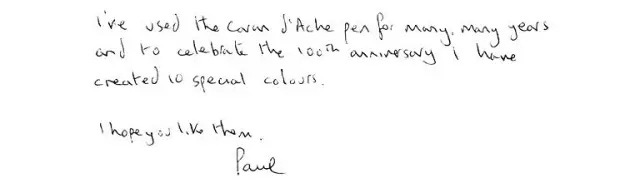 I've used the Caran d'Ache pen for many, many years
and to celebrate the 100th anniversary I have
created 10 special colours.
I hope you like them.
Paul